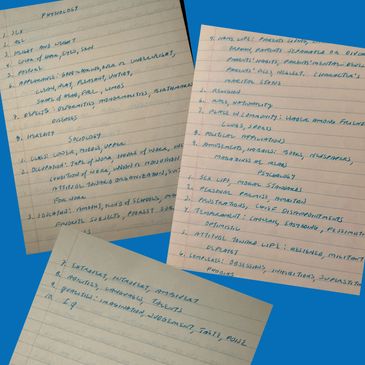 PHYSIOLOGY
1. SEX
2. AGE
3. HEIGHT AND WEIGHT
4. COLOR OF HAIR, EYES, SKIN
5. POSTURE
6. APPEARANCE: GOOD-LOOKING, OVER OR UNDERWEIGHT,
CLEAN, NEAT, PLEASANT, UNTIDY,
SHAPE OF HEAD, FACE, LIMBS
7. DEFECTS: DEFORMITIES, ABNORMALITIES, BIRTHMARKS
DISEASES
8. HEREDITY
SOCIOLOGY
1. CLASS: LOWER, MIDDLE, UPPER
2. OCCUPATION: TYPE OF WORK, HOURS OF WORK,
CONDITION OF WORK, UNION OR NONUNION
ATTITUDE TOWARD ORGANIZATION,
FOR WORK
3. EDUCATION: AMOUNT, KIND OF SCHOOLS,
FAVORITE SUBJECTS, POOREST
4. HOME LIFE: PARENTS LIVING,
ORPHAN, PARENTS SEPARATED OR
PARENTS' HABITS, PARENTS' MENTAL
PARENTS' VICES, NEGLECT. CHARACTER'S
MARITAL STATUS
5. RELIGION
6. RACE, NATIONALITY
7. PLACE IN COMMUNITY: LEADER AMONG FRIENDS
CLUBS, SPORTS
8. POLITICAL AFFILIATIONS
9. AMUSEMENTS, HOBBIES: BOOKS, NEWSPAPERS,
MAGAZINES HE READS
PSYCHOLOGY
1. SEX LIFE, MORAL STANDARDS
2. PERSONAL PREMISE, AMBITION
3. FRUSTRATIONS, CHIEF DISAPPOINTMENTS
4. TEMPERAMENT: CHOLERIC, EASYGOING, PESSIMISTIC
OPTIMISTIC
5. ATTITUDE TOWARD LIFE: RESIGNED, MILITANT
DEFEATIST
6. COMPLEXES: OBSESSIONS, INHIBITIONS, SUPERSTITIONS
PHOBIAS
7. EXTROVERT, INTROVERT, AMBIVERT
8. ABILITIES, LANGUAGES, TALENTS
9. QUALITIES: IMAGINATION, JUDGEMENT, TASTE, POISE
10. I.Q.